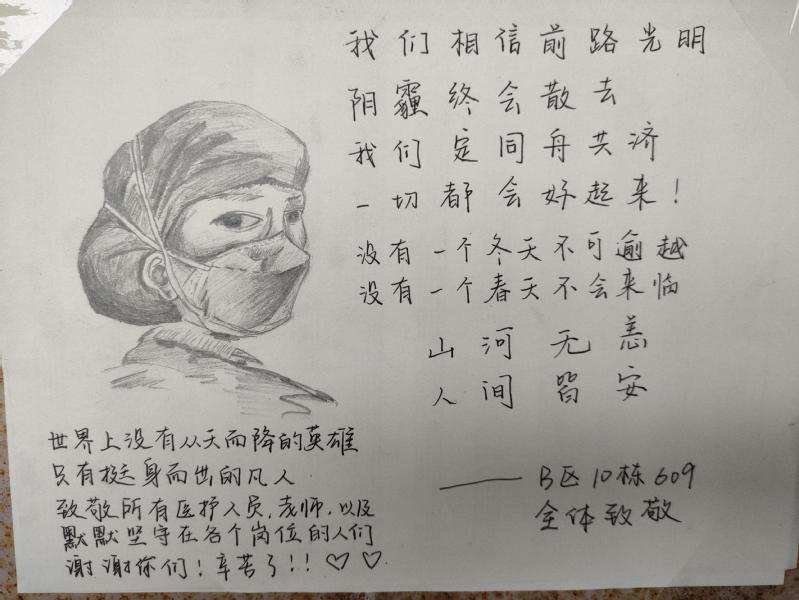 我们相信前路光明
阴霾终会散去
我们定同舟共济
一切都会好起来！
没有一个冬天不可逾越
没有一个春天不会来临
山河无恙
人间皆安
世界上没有从天而降的英雄
只有挺身而出的凡人
致敬所有医护人员,老师,以及
默默坚守在各个岗位的人们
谢谢你们！辛苦了！！♡♡
——B区10栋609
全体致敬